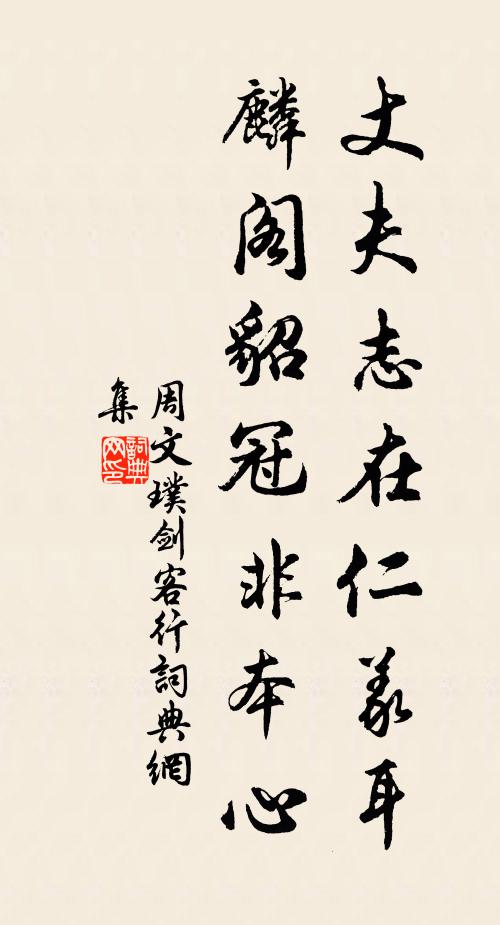 丈夫志在仁義耳
麟阁貂冠非本心
周文璞剑客行詞典網
集
詞典
网印